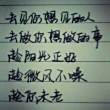 去见你想见的人
去做你想做的事
趁阳光正好
趁微风不噪
趁你未老